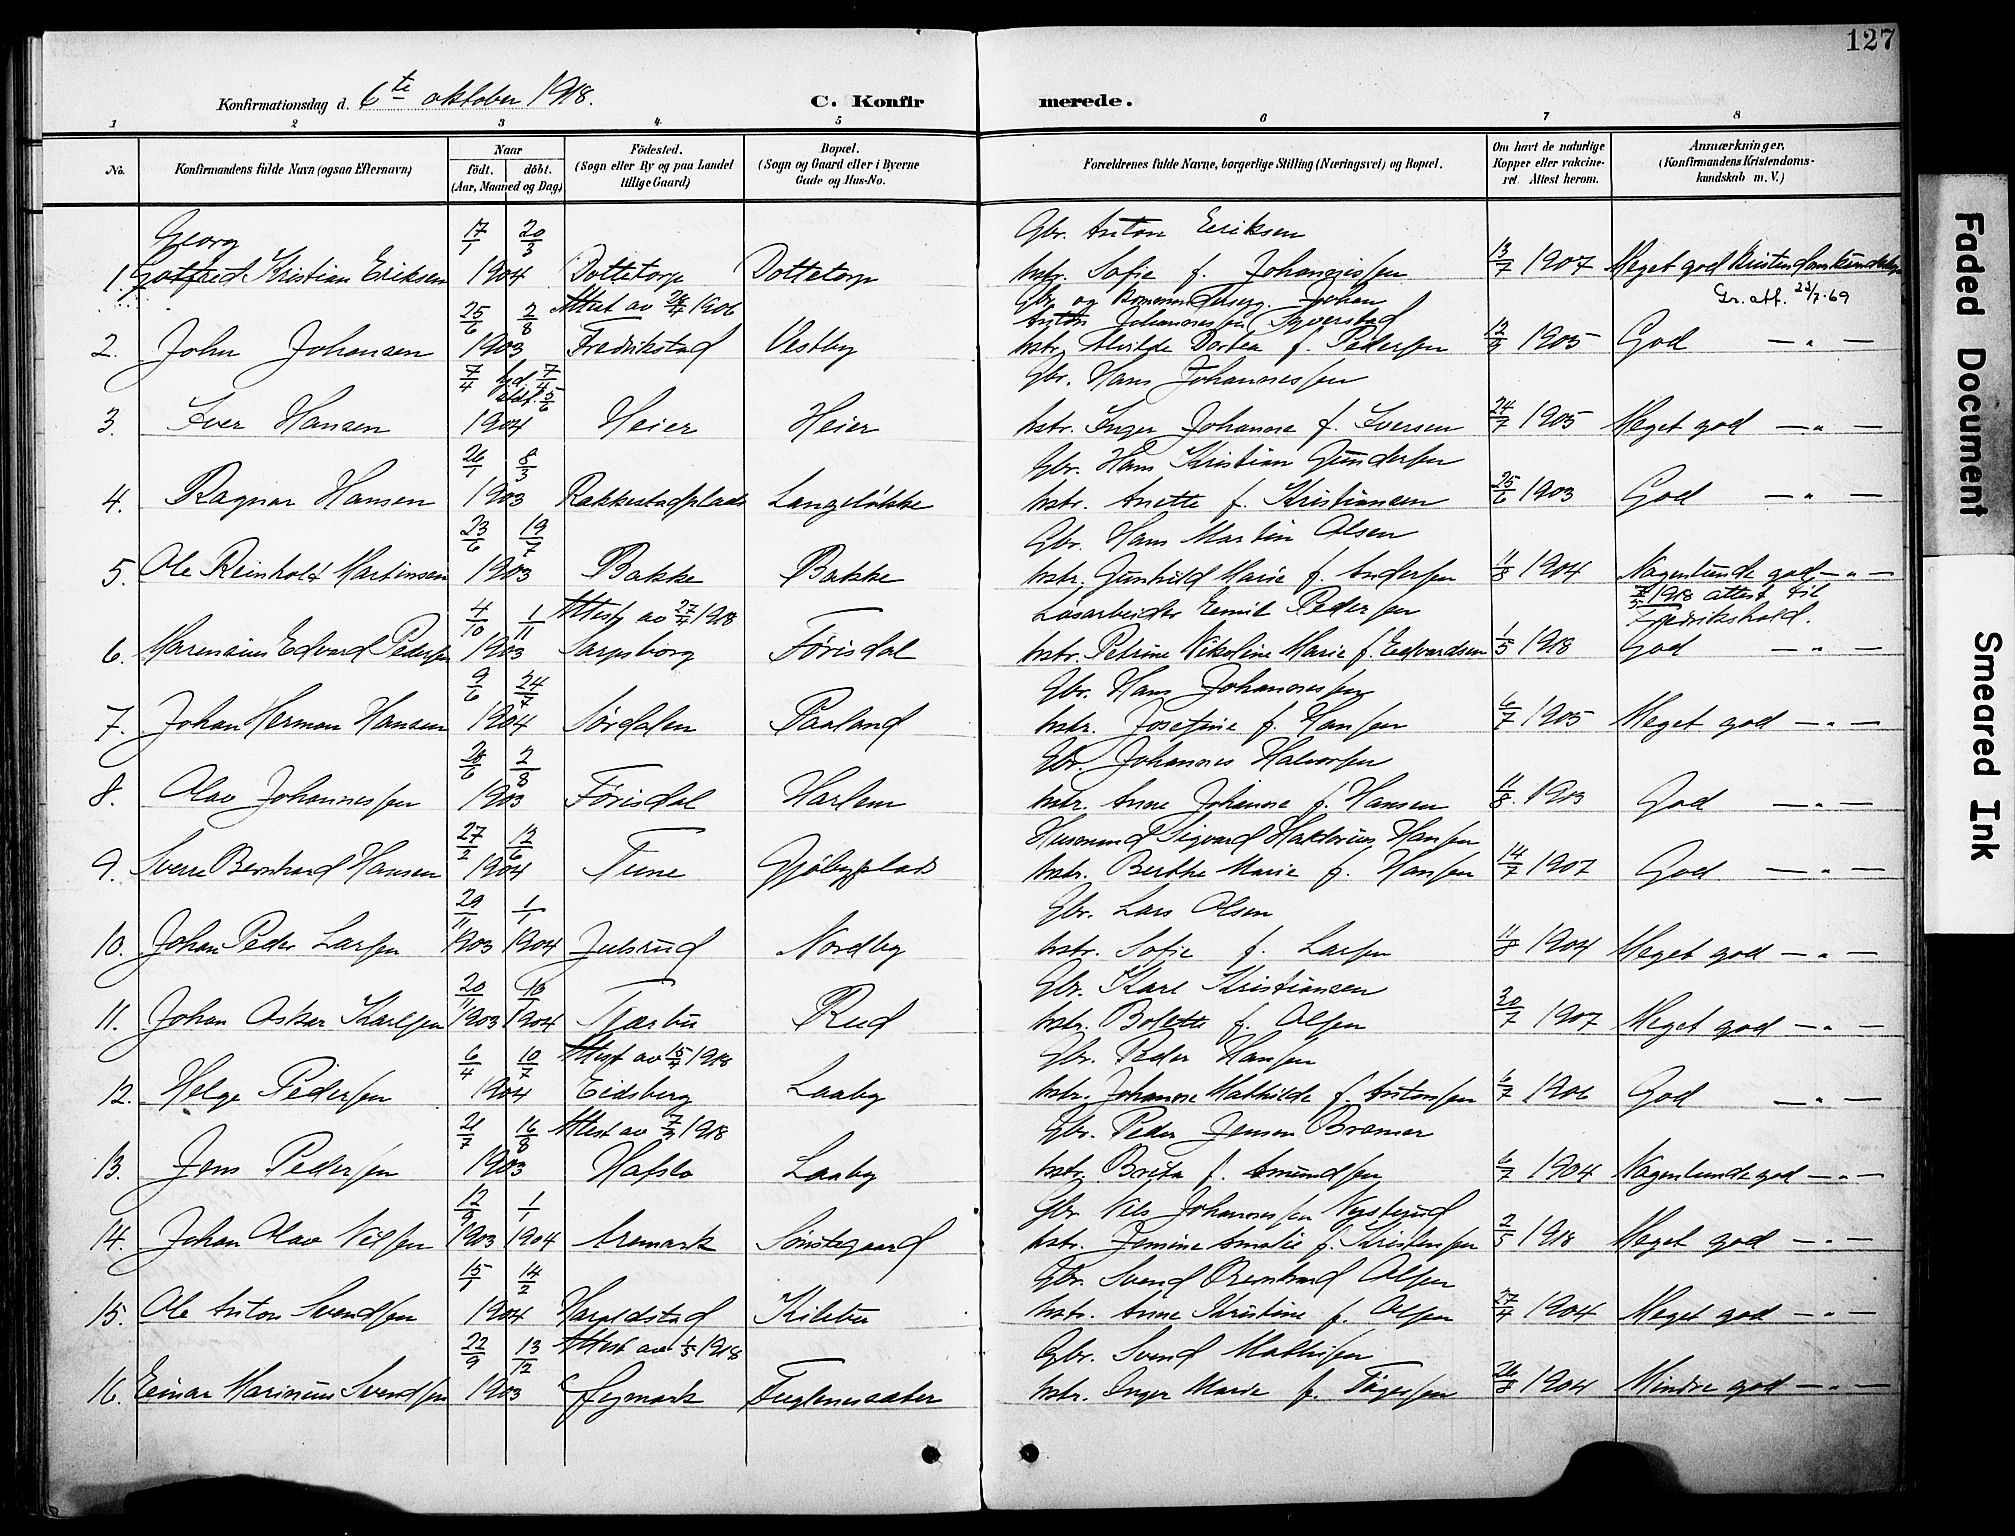 127
Konfirmationsdag d. 6te oktober 1918. C. Konfirmerede.
1 2 3 4 5 6 7 8
No. Konfirmandens fulde Navn (ogsaa Efternavn) Naar født. døbt. (Aar, Maaned og Dag) Fødested. (Sogn eller By og paa Landet tillige Gaard) Bopæl. (Sogn og Gaard eller i Byerne Gade og Hus-No. Forældrenes fulde Navne, borgerlige Stilling (Næringsvei) og Bopæl. Om havt de naturlige Kopper eller vakcineret. Attest herom. Anmærkninger. (Konfirmandens Kristendomskundskab m. V.)
Georg 17/1 20/3 Gbr. Anton Eriksen
1. Gotfred Kristian Eriksen 1904 Dottetorp Dottetorp hstr. Sofie f. Johannessen 13/7 1907 Meget god Kristendomskundskap
25/6 2/8 Attest av 24/4 1906 Gbr. og Johan Gr. att. 23/7-69
Anton Johannessen Syverstad
2. John Johansen 1903 Fredrikstad Vestby hstr. Alvilde Dortea f. Pedersen 12/9 1905 God — " —
7/4 hjd. 7/4 stdf. 5/6 Gbr. Hans Johannessen
3. Iver Hansen 1904 Heier Heier hstr. Inger Johanne f. Iversen 24/7 1905 Meget god — " —
26/1 8/3 Gbr. Hans Kristian Gundersen
4. Ragnar Hansen 1903 Rakkestadplads Langeløkke hstr. Anette f. Kristiansen 25/6 1903 God — " —
23/6 19/7 Gbr. Hans Martin Olsen
5. Ole Reinholdt Martinsen 1903 Bakke Bakke hstr. Gunhild Marie f. Andersen 11/8 1904 Nogenlunde god — " —
4/10 1/11 Attest av 27/4 1918 Løsarbeider Eemil Pedersen 1918 attest til Fredrikshald.
6. Marensius Edvard Pedersen 1903 Sarpsborg Førisdal hstr. Petrine Nikoline Marie f. Eedvardsen 1/5 1918 God — " —
9/6 24/7 Gbr. Hans Johannessen
7. Johan Herman Hansen 1904 Sørdalen Paaland hstr. Josefine f. Hansen 6/7 1905 Meget god — " —
2/8 Gbr. Johannes Halvorsen
8. Olav Johannessen 1903 Førisdal Harlem hstr. Anne Johanne f. Hansen 11/8 1903 God — " —
27/2 12/6 Husmand Sigvard Hansen
9. Sverre Bernhard Hansen 1904 Tune Gjølbyplads hstr. Berthe Marie f. Hansen 14/7 1907 God — " —
29/11 1/1 Gbr. Lars Olsen
10. Johan Peder Larsen 1903 1904 Julsrud Nordby hstr. Sofie f. Larsen 11/8 1904 Meget god — " —
20/11 10/1 Gbr. Karl Kristiansen
11. Johan Oskar Karlsen 1903 1904 Tjærbu Rud hstr. Bolette f. Olsen 30/7 1907 Meget god — " —
6/4 10/7 Attest av 15/4 1918 Gbr. Peder Hansen
12. Helge Pedersen 1904 Eidsberg Laaby hstr. Johanne Mathilde f. Antonsen 6/7 1906 God — " —
21/7 16/8 Attest av 7/3 1918 Gbr. Peder Jensen Bremer
13. Jens Pedersen 1903 Hafslo Laaby hstr. Brita f. Amundsen 6/7 1904 Nogenlunde god — " —
12/9 1/1 Gbr. Nils Johannessen
14. Johan Olav Nilsen 1903 1904 Aremark Sønstegaard hstr. Jensine Amalie f. Kristensen 2/5 1918 Meget god — " —
15/1 14/2 Gbr. Svend Bernhard Olsen
15. Ole Anton Svendsen 1904 Haraldstad Kilebu hstr. Anne Kristine f. Olsen 27/4 1904 Meget god — " —
22/9 13/12 Attest av 1/5 1918 Gbr. Svend Mathisen
16. Eeinar Marinius Svendsen 1903 Øymark Fuglenesaater hstr. Inger Marie f. Tøgersen 26/8 1904 Mindre god — " —
Faded Document
Smeared Ink